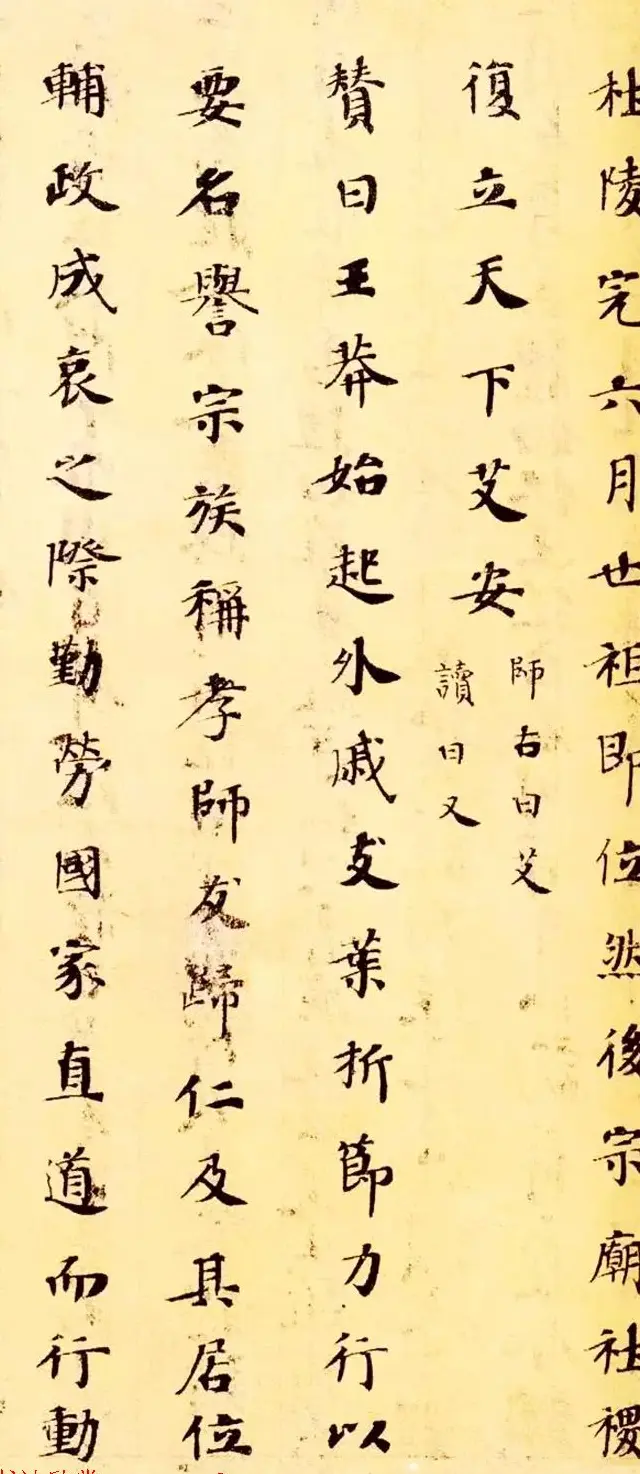 杜陵完六月世祖即位然後宗廟社稷
復立天下艾安
師古曰艾
讀曰乂
贊曰王莽始起外戚支葉折節力行以
要名譽宗族稱孝師友歸仁及其居位
輔政成哀之際勤勞國家直道而行動